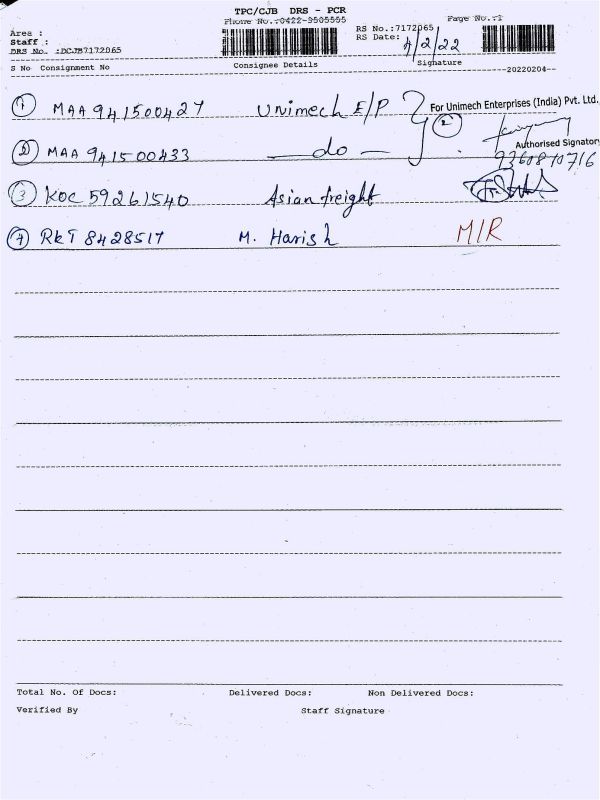 TPC/CJB DRS - PCR
Phone No.:0422-9505505
Area :
Staff :
DRS No. :DCJB7172065
RS No.:7172065
RS Date: 4/2/22
Page No.:1
S No Consignment No Consignee Details Signature
20220204
1 MAA 941500427 Unimech E/P
For Unimech Enterprises (India) Pvt. Ltd.,
2
Authorised Signatory
2 MAA 941500433 — do —
9360870716
3 KOC 59261540 Asian freight
4 RKT 8428517 M. Harish M/R
Total No. Of Docs: Delivered Docs: Non Delivered Docs:
Verified By Staff Signature